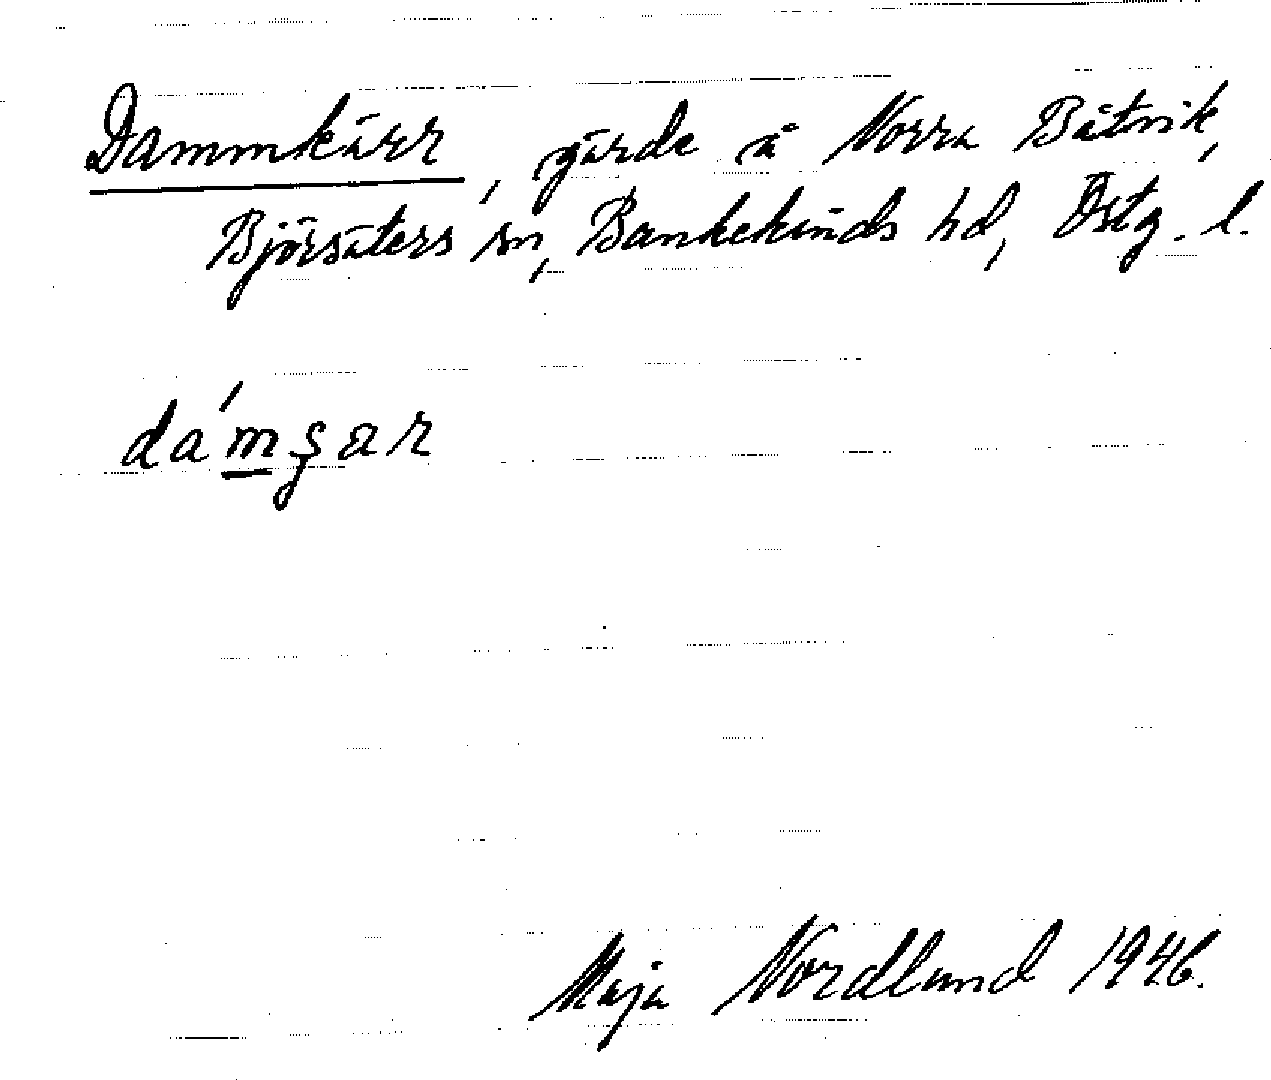 Dammkärr, gärde å Norra Båtvik,
Björsäters sn, Bankekinds hd, Östg. l.
da´mşar
Maja Nordlund 1946.